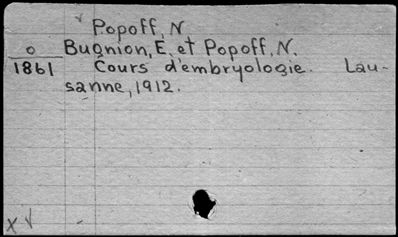 Popoff, N
o Bugnion, E. et Popoff, N.
1861 Cours d'embryologie. Lau-
sanne, 1912.
X √